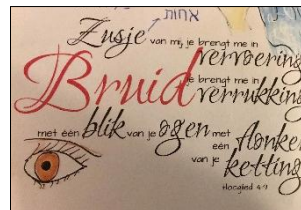 אחות
Zusje van mij, je brengt me in
vervoering
Bruid je brengt me in
verrukking
met één blik van je ogen met
één flonker
van je ketting
Hooglied 4:9